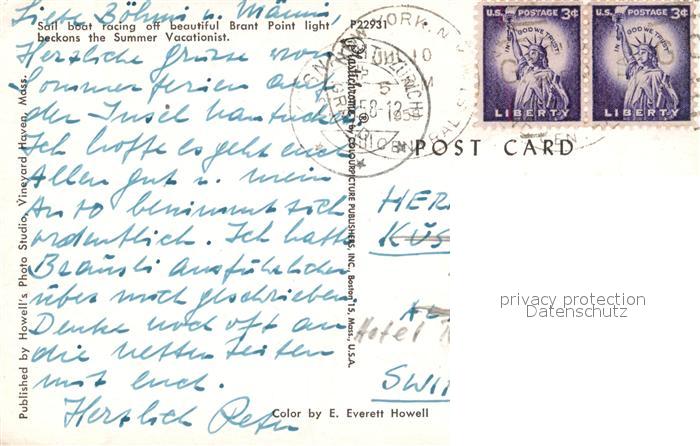 Liebe Böhmi u. Männi,
Sail boat racing off beautiful Brant Point light
beckons the Summer Vacationist.
P22931
Herzliche grüsse von
Sommerferien auf
der Insel
Ich hoffe es geht euch
Allen gut u. mein
Auto benimmt sich
ordentlich. Ich hatte
Bräusli ausführlicher
über mich geschrieben
Denke noch oft an
die netten Zeiten
mit euch.
Herzlich Peter
Published by Howell's Photo Studio, Vineyard Haven, Mass.
Plastichrome ® by COLOURPICTURE PUBLISHERS, INC., Boston 15, Mass., U.S.A.
Color by E. Everett Howell
U.S. POSTAGE 3¢
IN GOD WE TRUST
LIBERTY
U.S. POSTAGE 3¢
IN GOD WE TRUST
LIBERTY
NEW YORK, N.Y.
POST CARD
HER
KÜS
Hotel
SWI
privacy protection
Datenschutz